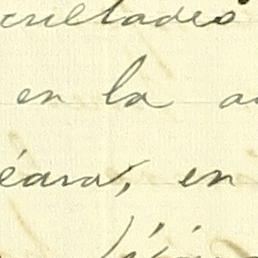 cultades
en la a
éara, en